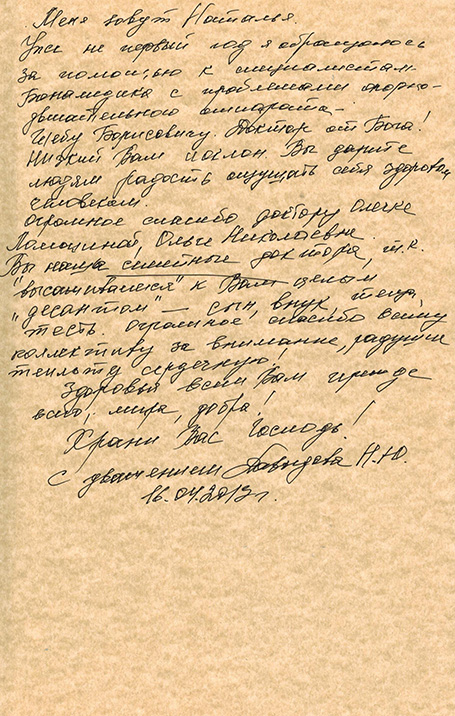 Меня зовут Наталья.
Уже не первый год я обращаюсь
за помощью к специалистам
Бонамедика с проблемами опорно-
двигательного аппарата –
Борисовичу. Доктор от Бога!
Низкий Вам поклон. Вы дарите
людям радость ощущать себя здоровым
человеком.
Огромное спасибо доктору Олечке
Ольге Николаевне.
Вы наши семейные доктора, т.к.
"высаживаемся" к Вам целым
"десантом" – сын, внук, теща,
тесть. Огромное спасибо всему
коллективу за внимание, радушие
теплоту сердечную!
Здоровья всем Вам прежде
всего, мира, добра!
Храни Вас Господь!
С уважением Давыдова Н.Ю.
16.04.2013г.